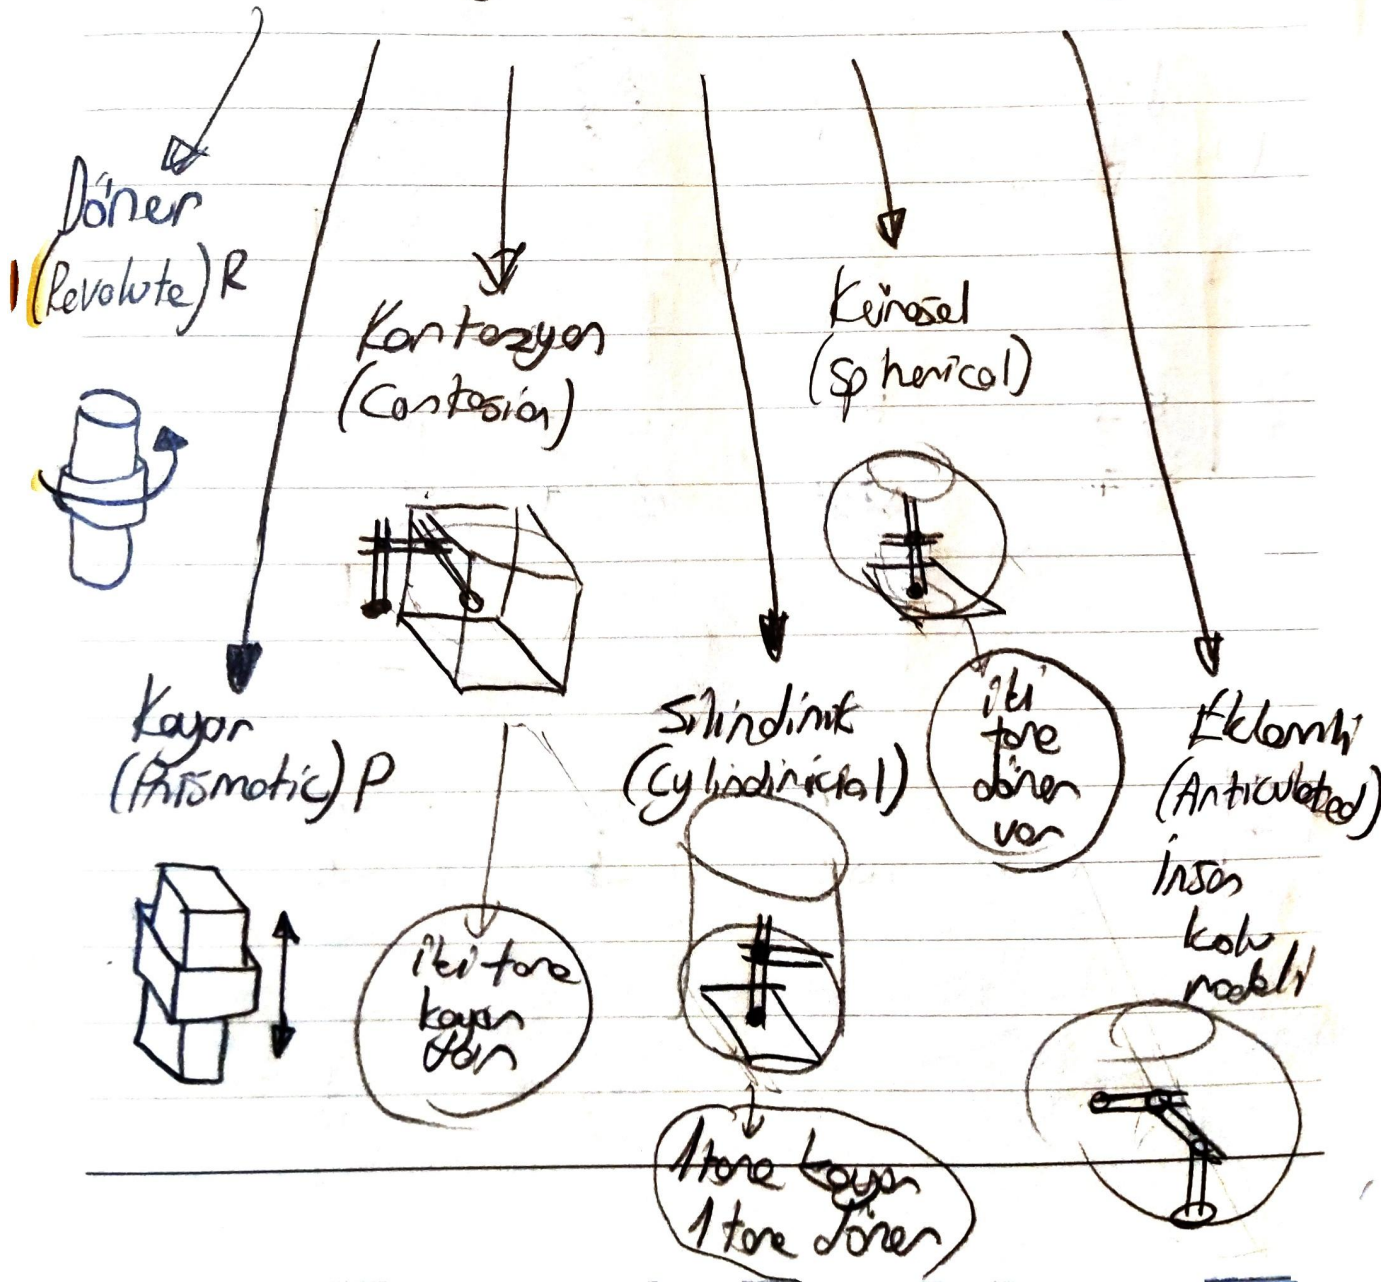 Döner
(Revolute) R
Kartezyen
(Cartesian)
Küresel
(Spherical)
Kayar
(Prismatic) P
Silindirik
(Cylindiricial)
iki
tane
döner
var
Eklemli
(Articulated)
insan
kolu
modeli
iki tane
kayar
var
1 tane kayar
1 tane döner